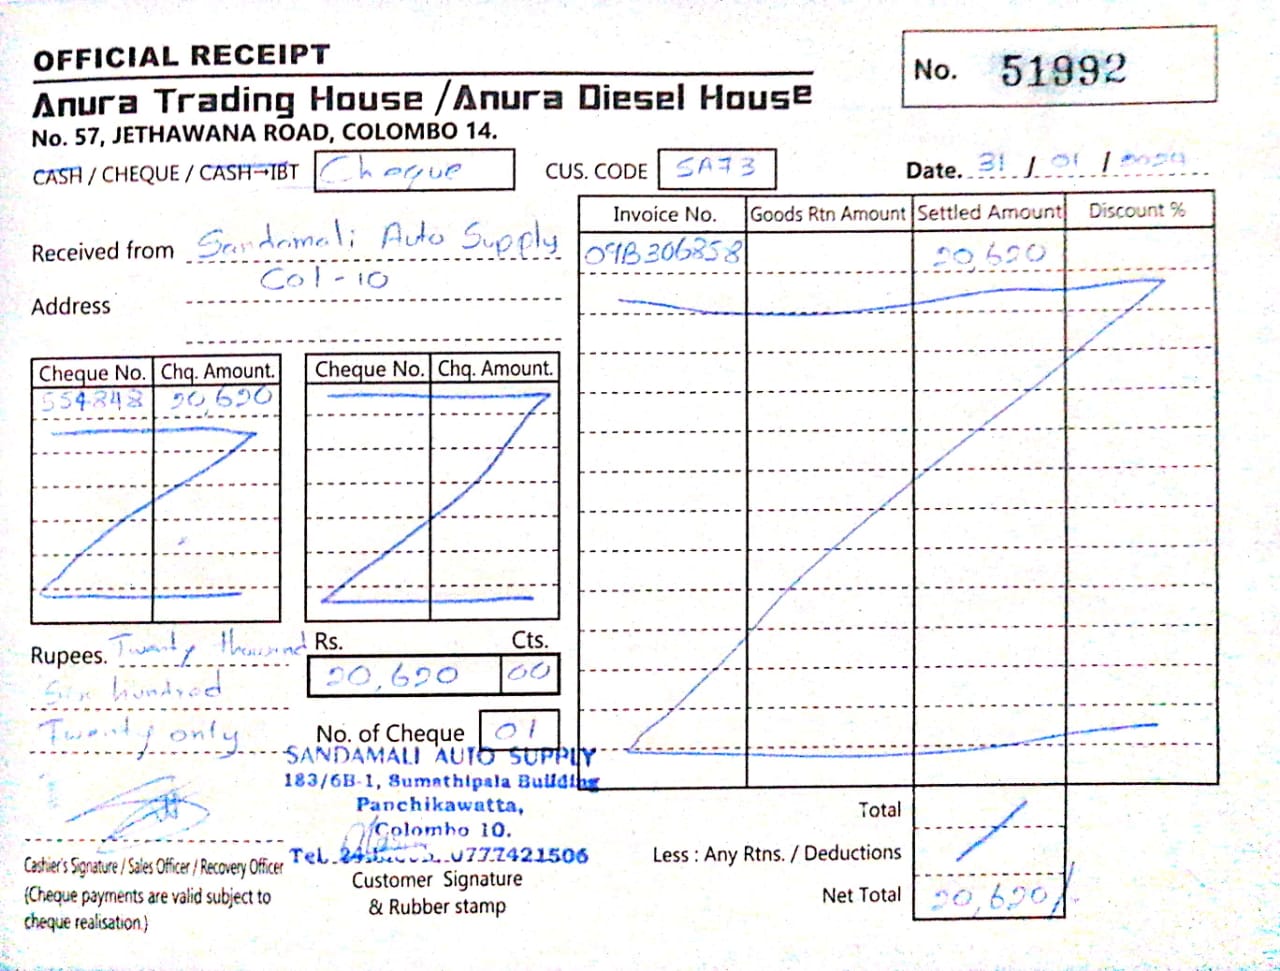 OFFICIAL RECEIPT
No. 51992
Anura Trading House / Anura Diesel House
No. 57, JETHAWANA ROAD, COLOMBO 14.
CASH / CHEQUE / CASH→IBT Cheque CUS. CODE SA73 Date. 31 / 01 / 2024
Received from Sandamali Auto Supply
Col-10
Address
Invoice No. Goods Rtn Amount Settled Amount Discount %
09B306858 20,620
Cheque No. Chq. Amount. Cheque No. Chq. Amount.
554848 20,620
Rupees. Twenty thousand
Six hundred
Twenty only
Rs. Cts.
20,620 00
No. of Cheque 01
SANDAMALI AUTO SUPPLY
183/6B-1, Sumathipala Building
Panchikawatta,
Colombo 10.
Tel. 0777421506
Customer Signature
& Rubber stamp
Cashier's Signature / Sales Officer / Recovery Officer
(Cheque payments are valid subject to
cheque realisation.)
Total
Less : Any Rtns. / Deductions
Net Total 20,620/.